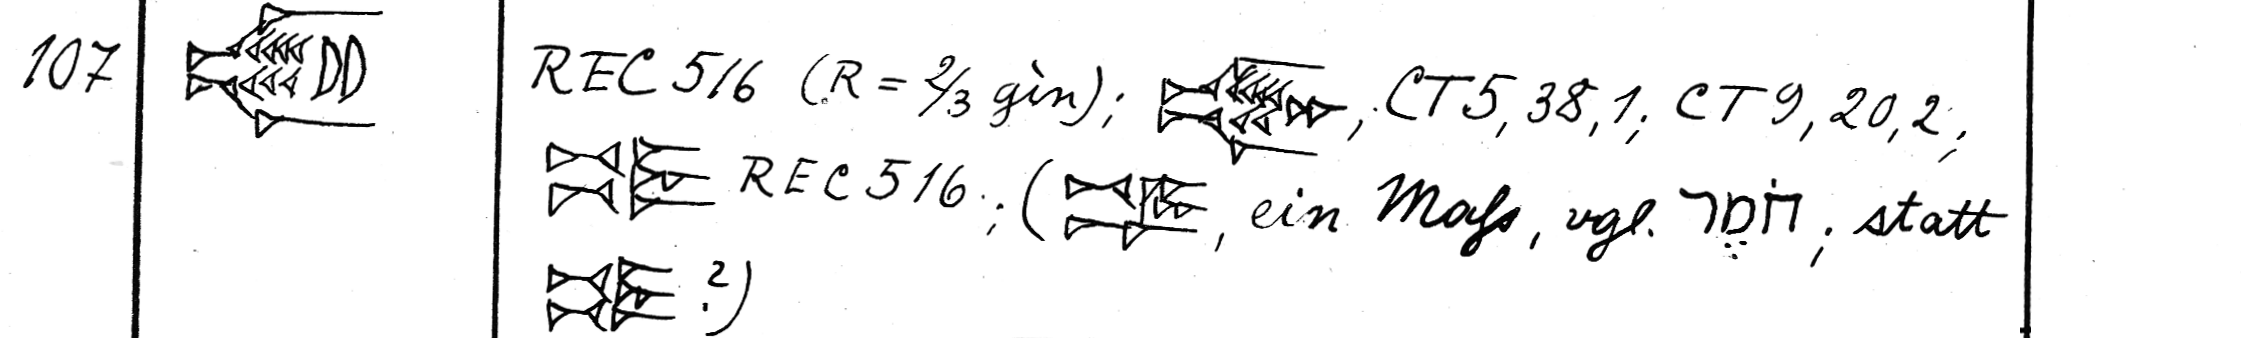 107 REC 516 (R = 2/3 gìn); , CT 5, 38, 1; CT 9, 20, 2;
REC 516.; ( , ein Maß, vgl. חֹמֶר; statt
?)